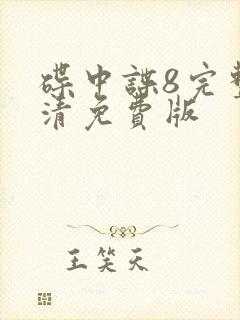 碟中諜8完整
清免費版
王笑天